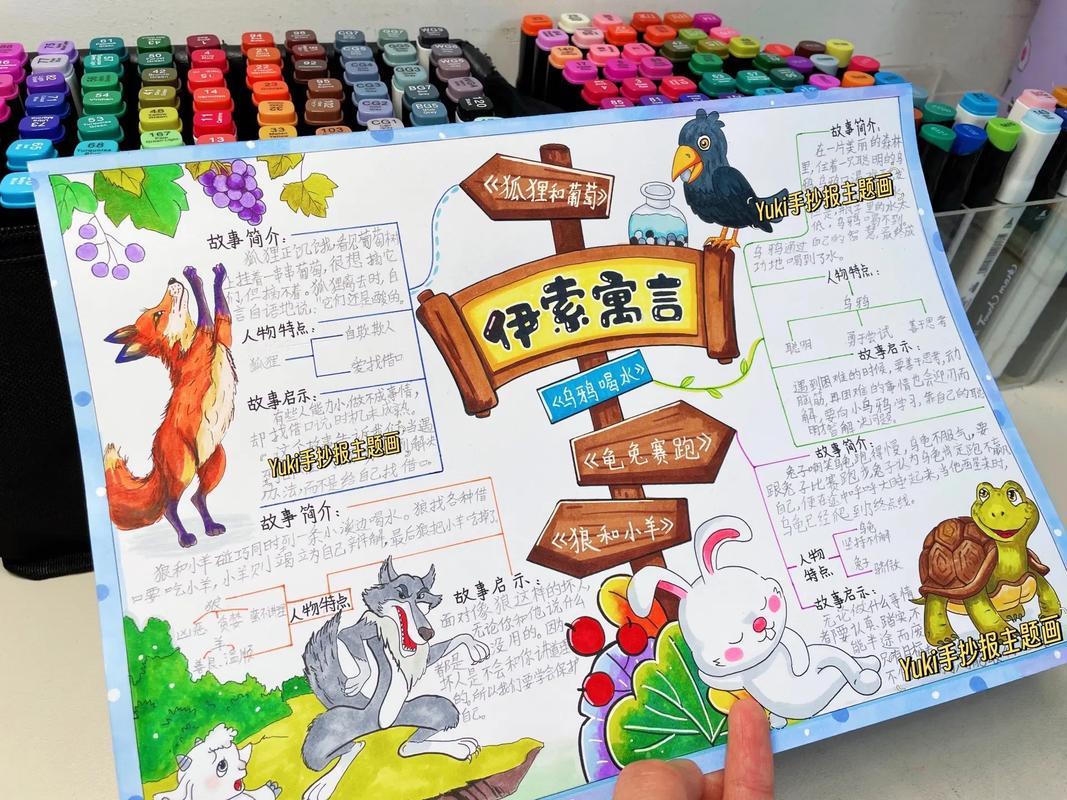 《狐狸和葡萄》
伊索寓言
《乌鸦喝水》
《龟兔赛跑》
《狼和小羊》
故事简介:
狐狸正饥饿,看见葡萄树
上挂着一串串葡萄,很想摘它
们,但摘不着。狐狸离去时,自
言自语地说:"它们还是酸的。
人物特点:
狐狸
自欺欺人
爱找借口
故事启示:
有些人能力小,做不成事情,
却找借口说时机未成熟。
Yuki手抄报主题画
方法,而不是给自己找借口。
故事简介:
狼和小羊碰巧同时到一条小溪边喝水。狼找各种借
口要吃小羊,小羊则竭立为自己辩解,最后狼把小羊吃掉了
人物特点
狼
凶恶
贪婪
蛮不讲理
羊
善良
温顺
故事启示:
面对像狼这样的坏人,
无论你和他说什么
都是没用的。因为
坏人是不会和你讲道理
的。所以我们要学会保护
自己。
故事简介:
在一片美丽的森林
里,住着一只聪明的乌
Yuki手抄报主题画
低,乌鸦喝不到
乌鸦通过自己的智慧,最终成
功地喝到了水。
人物特点:
乌鸦
聪明
勇于尝试
善于思考
故事启示:
遇到困难的时候,要善于思考,动
脑筋,再困难的事情也会迎刃而
解,要向小乌鸦学习,靠自己的聪
故事简介:
兔子嘲笑乌龟跑得慢,乌龟不服气,要
跟兔子比赛跑步兔子认为乌龟肯定跑不赢
自己,便在途中呼呼大睡起来,当他西来时,
乌龟已经爬到终点线。
人物
特点
乌龟
坚持不懈
兔子
骄傲
故事启示:
无论做什么事情
都要认真踏实不
能半途而废
Yuki手抄报主题画